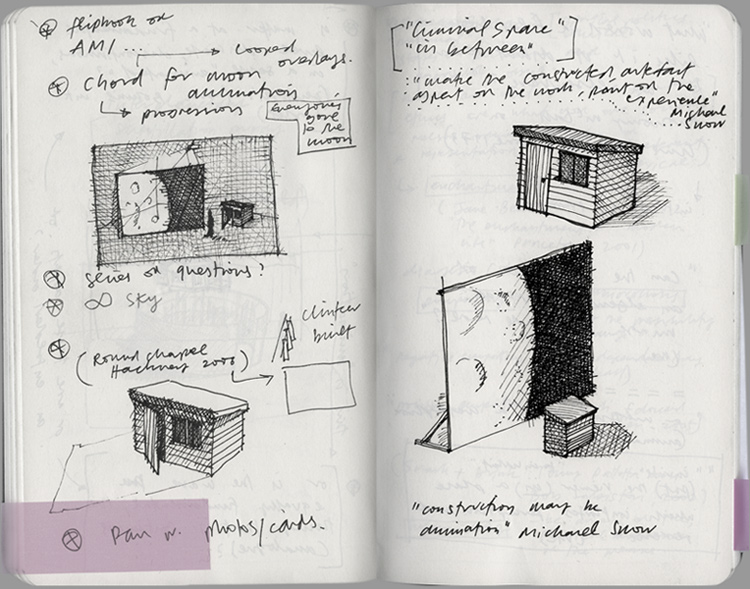 flipbook on
AMI ... → looped
overlays.
Chord for moon
animation
↳ progressions
everyone's
gone
to the
moon
series of questions?
∞ sky
clinker
built
(Round chapel
Hackney 2006)
Pan w. photos/cards.
"Liminal Space"
"in between"
"make the constructed artefact
aspect of the work, part of the
experience"
Michael
Snow
"construction may be
animation" Michael Snow